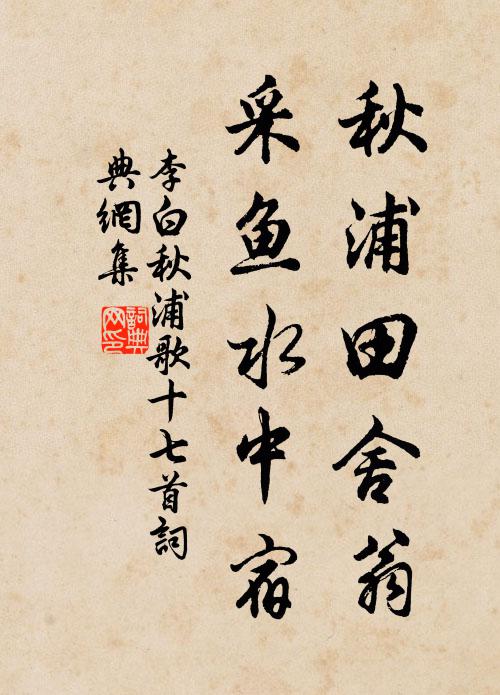 秋浦田舍翁
采鱼水中宿
李白秋浦歌十七首詞
典網集
詞典
网印